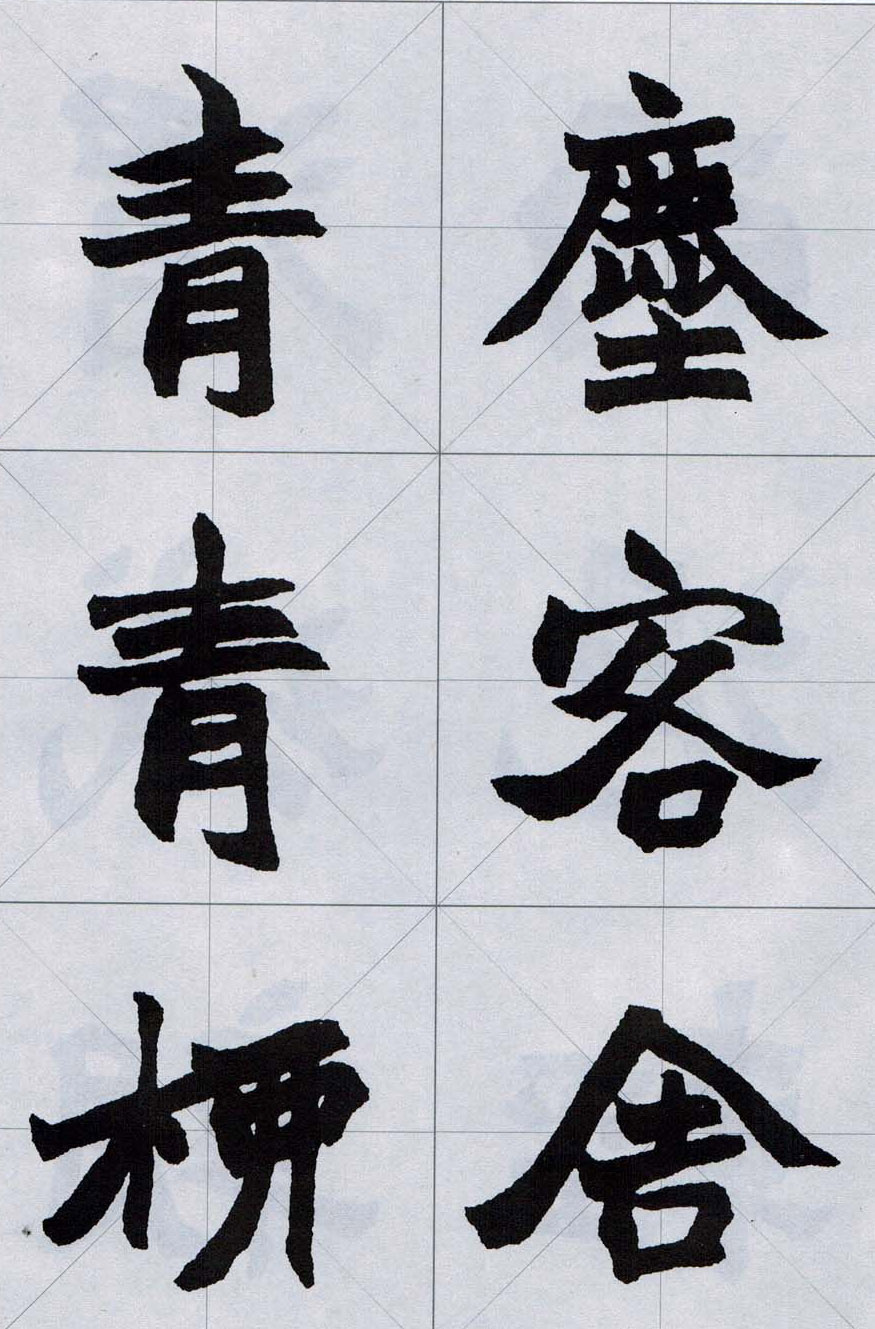 塵客舍
青青桺